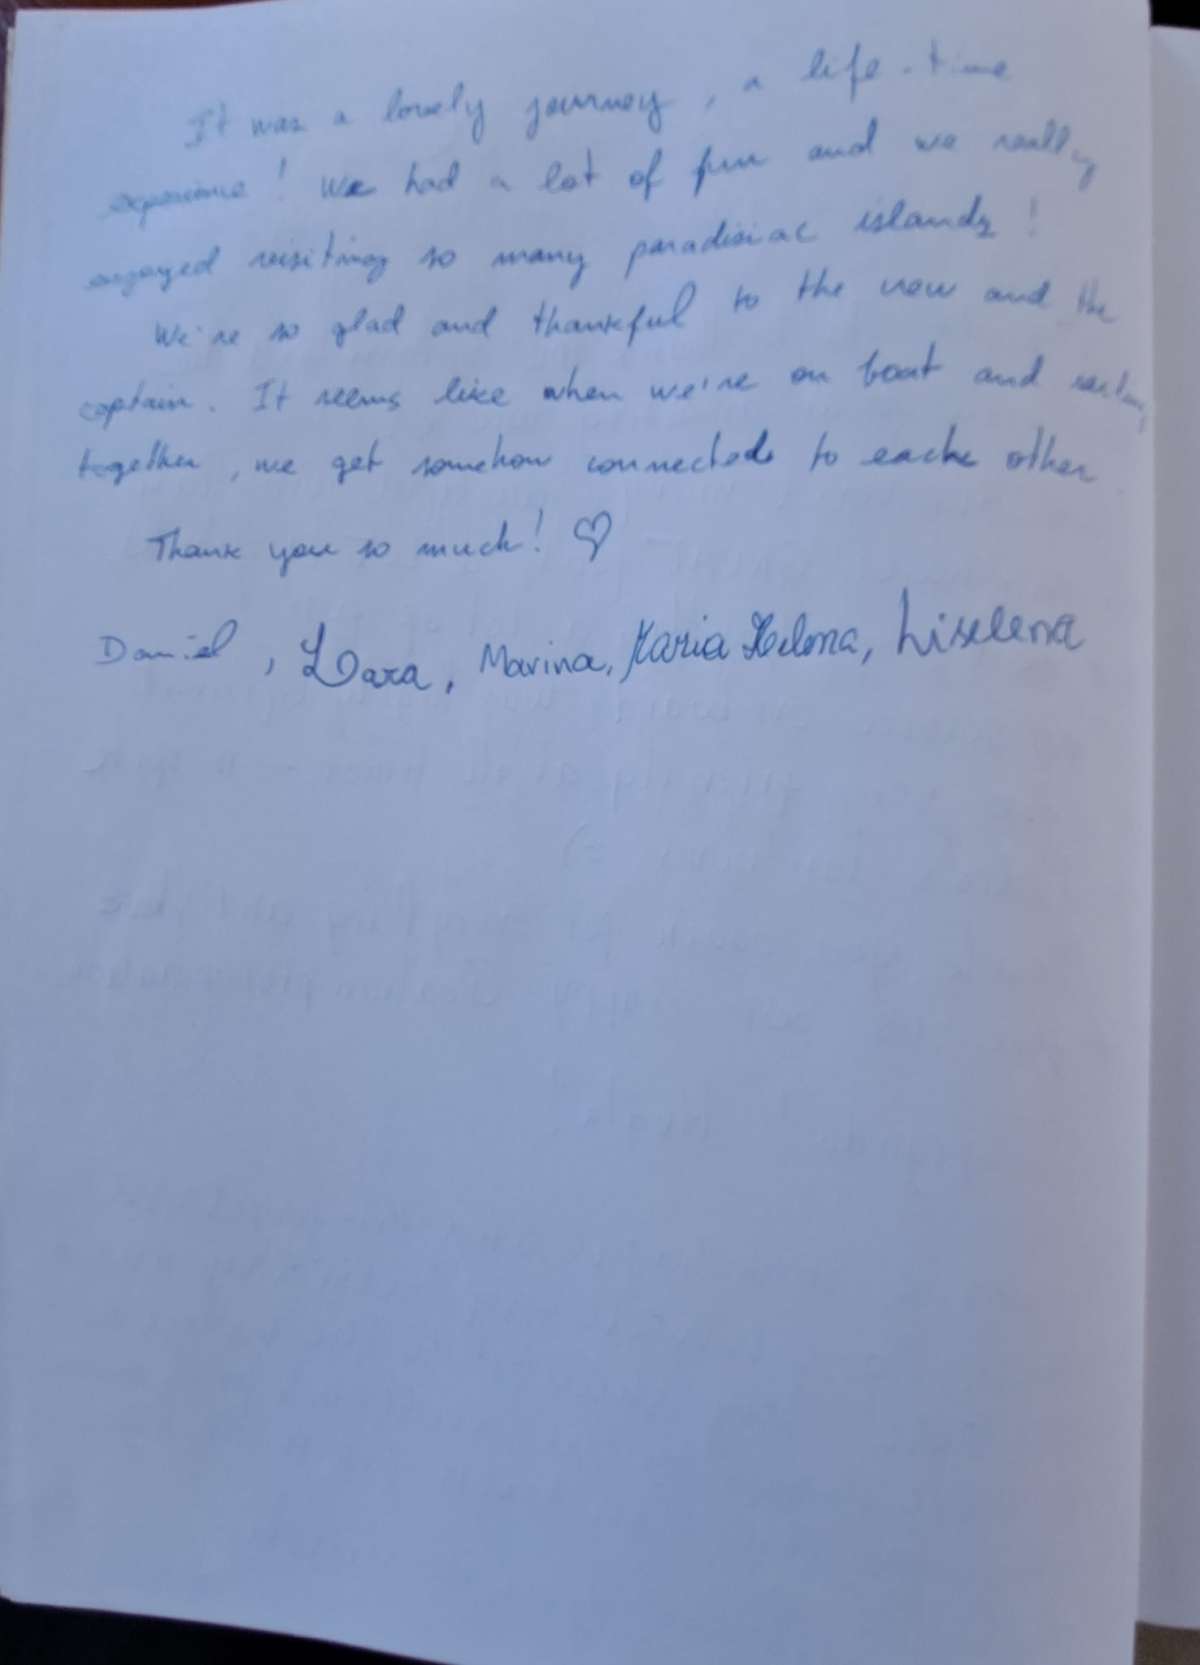 It was a lovely journey, a life-time
experience! We had a lot of fun and we really
enjoyed visiting so many paradisiac islands!
We're so glad and thankful to the crew and the
captain. It seems like when we're on boat and
together, we get somehow connected to each other
Thank you so much! ♡
Daniel, Lara, Marina, Maria Helena, Liselena